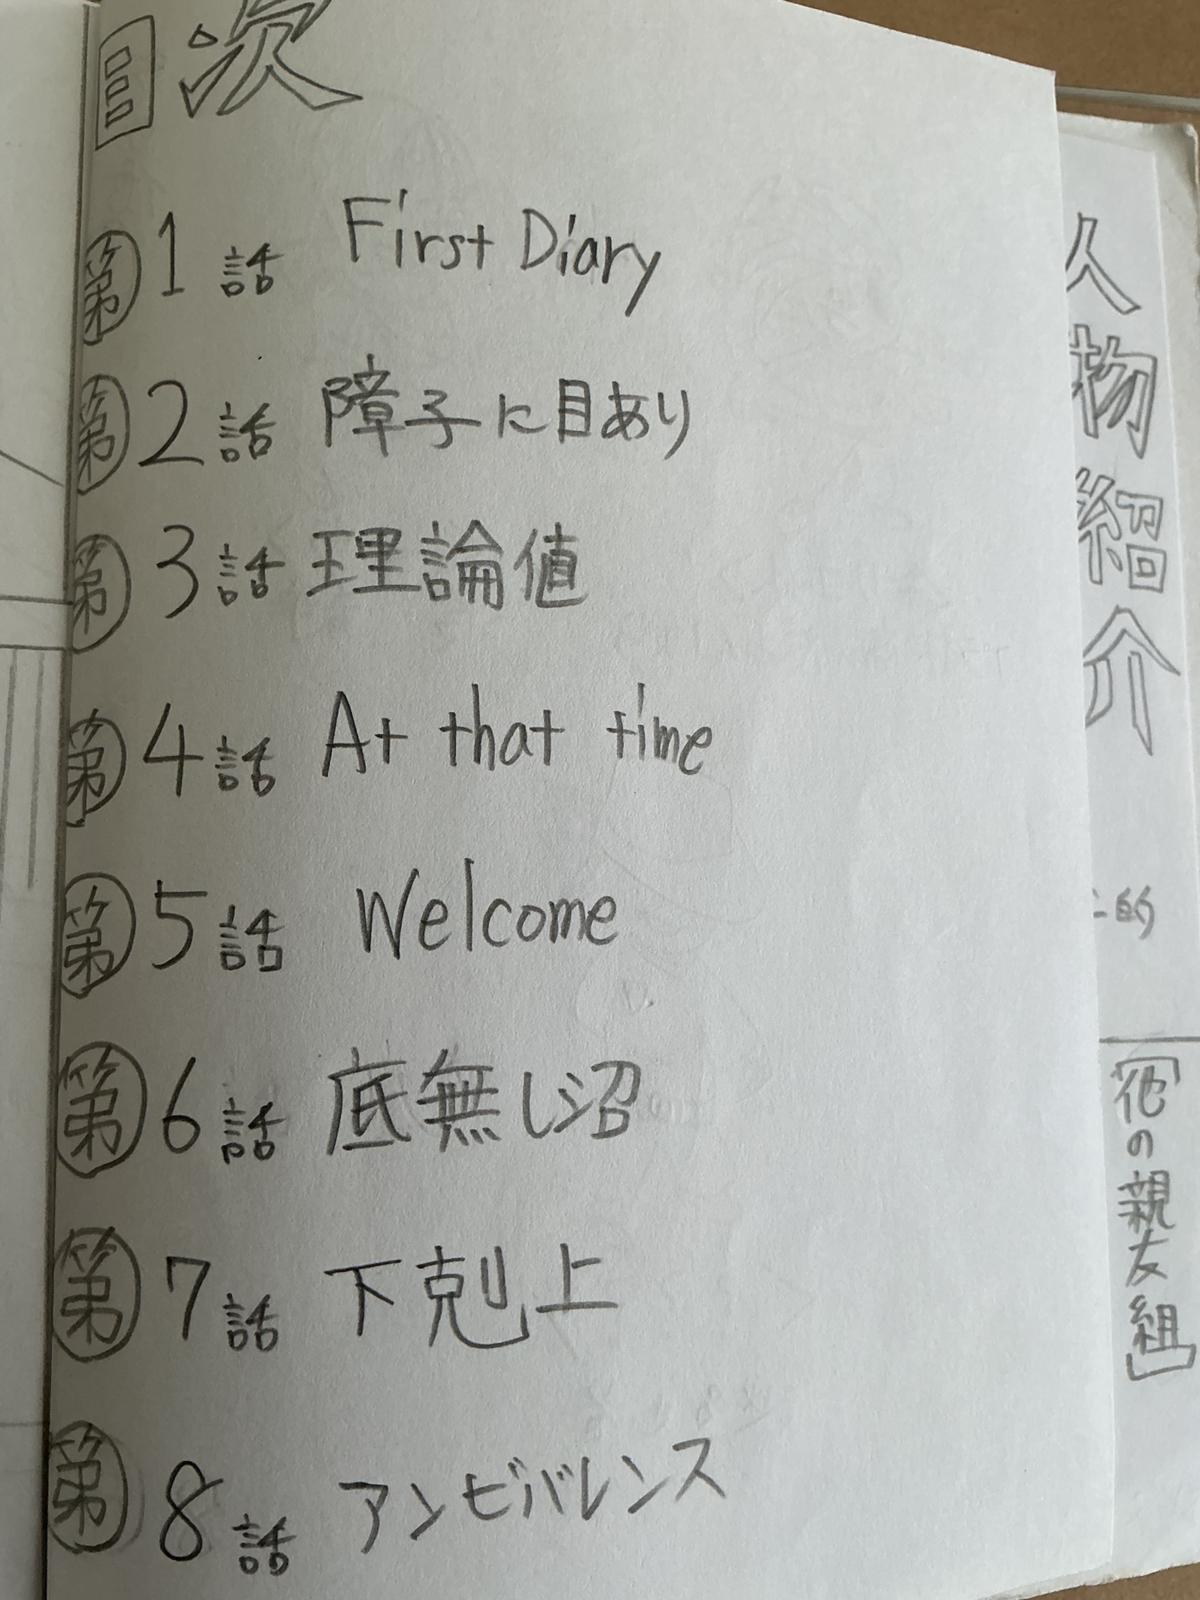 目次
第1話 First Diary
第2話 障子に目あり
第3話 理論値
第4話 At that time
第5話 Welcome
第6話 底無し沼
第7話 下剋上
第8話 アンビバレンス
人物紹介
的
[他の親友組]